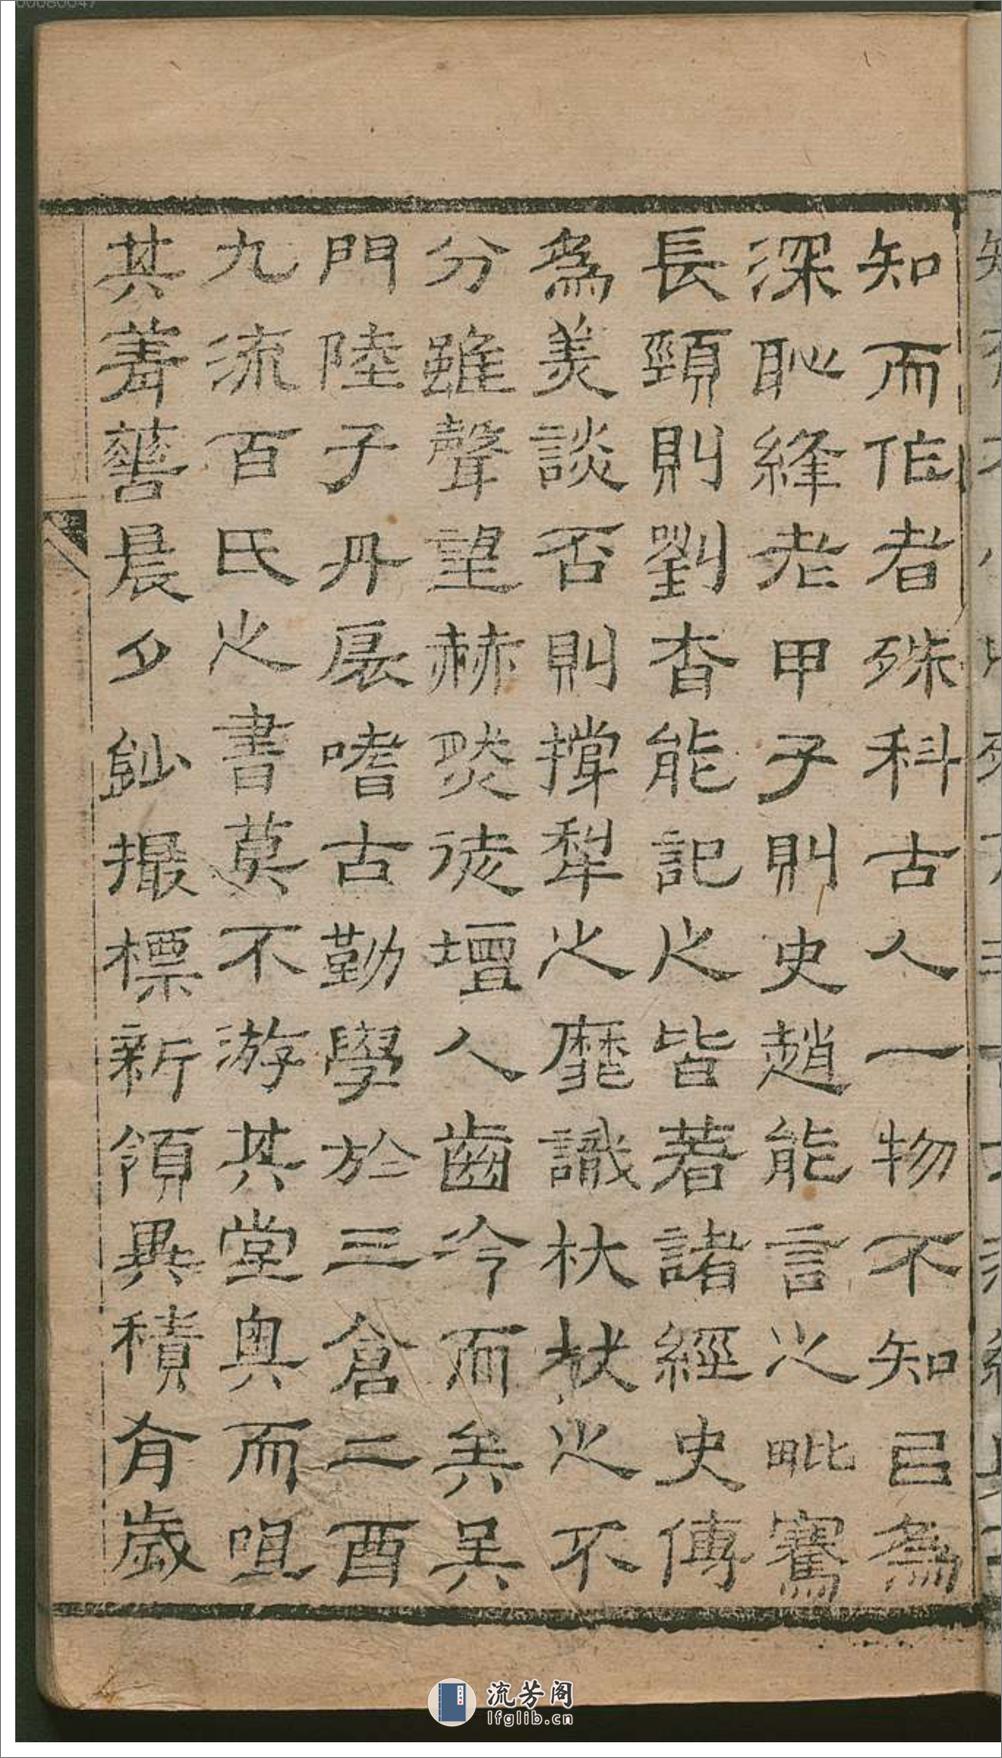 知而作者殊科古人一物不知已為
深恥絳老甲子則史趙能言之毗騫
長頸則劉杳能記之皆著諸經史傳
為美談否則撐犁之靡識杕杜之不
分雖聲望赫奕徒壇人齒冷而矣吳
門陸子丹扆嗜古勤學於三倉二酉
九流百氏之書莫不游其堂奧而咀
其菁華晨夕鈔撮標新領異積有歲
流芳阁
lfglib.cn